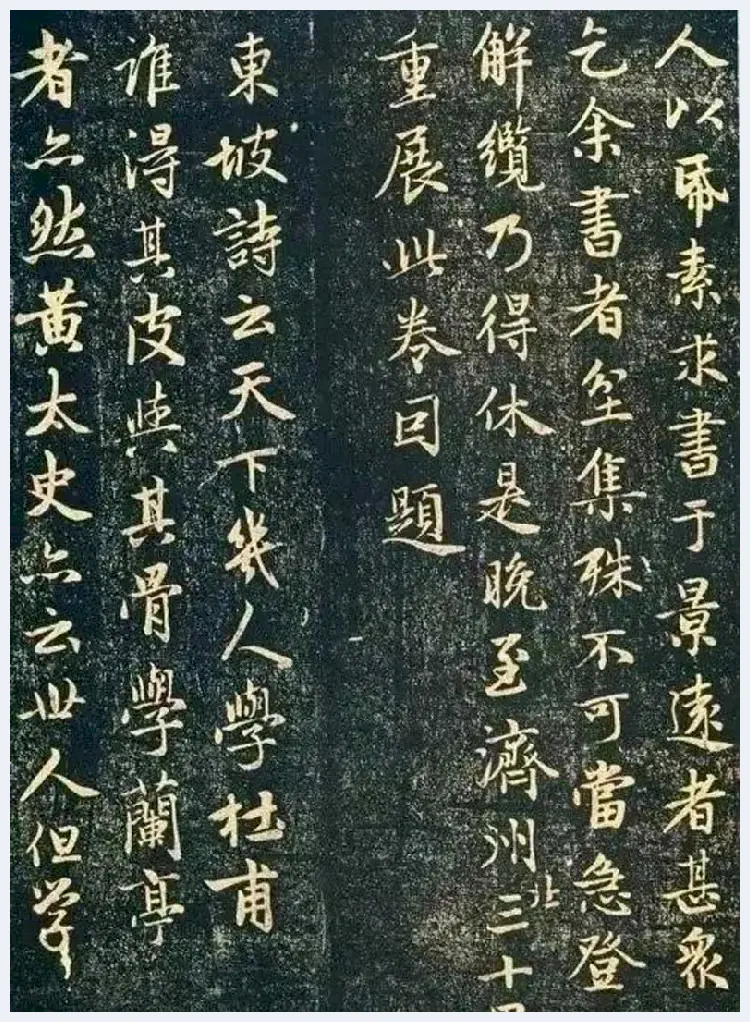 人以帋素求書于景遠者甚衆
乞余書者坌集殊不可當急登
解纜乃得休是晚至濟州北三十
重展此卷因題
東坡詩云天下幾人學杜甫
誰得其皮與其骨學蘭亭
者亦然黃太史亦云世人但學